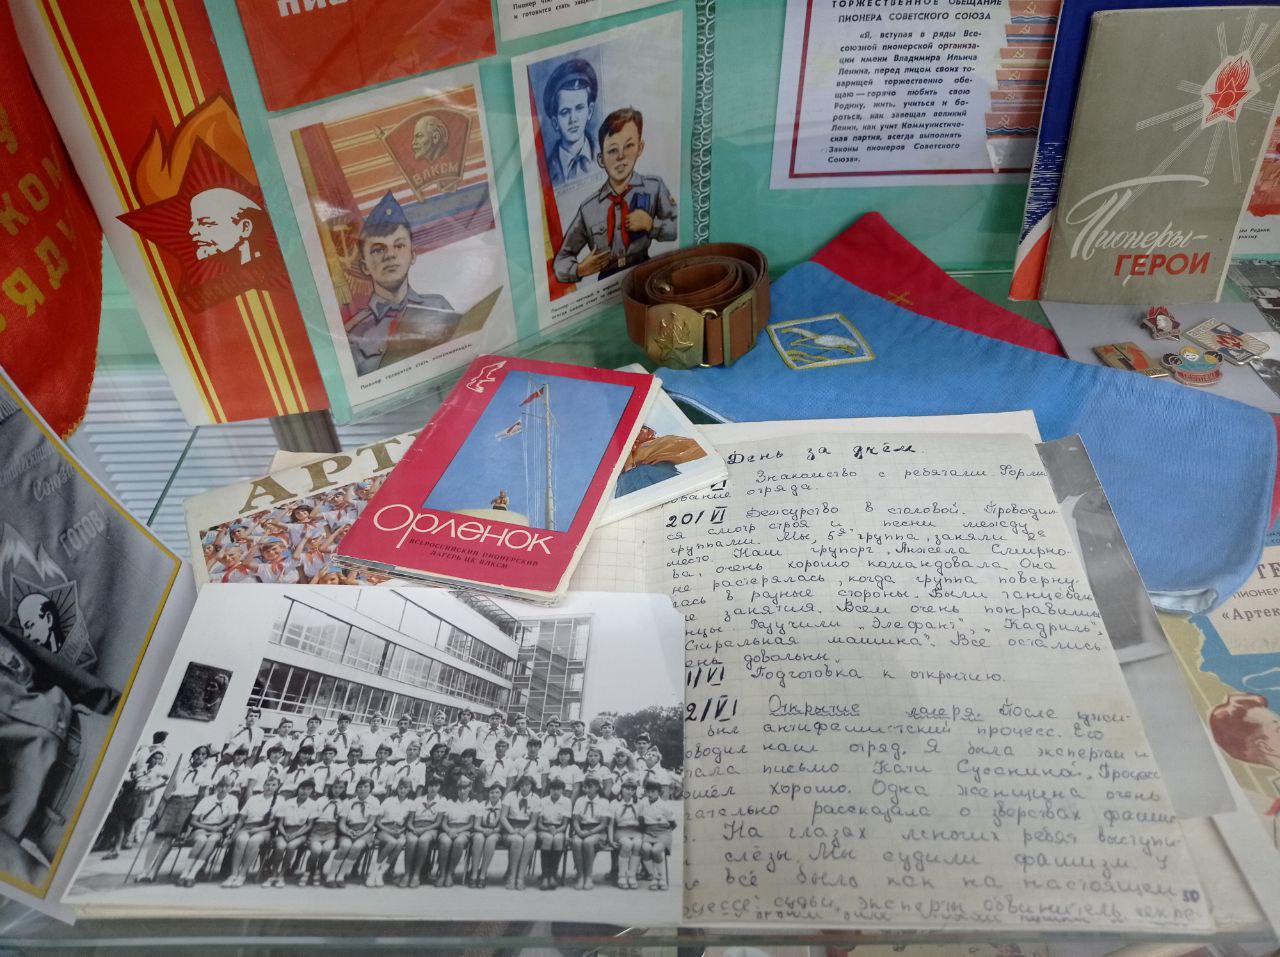 Пионер готовится стать комсомольцем.
ВЛКСМ
ТОРЖЕСТВЕННОЕ ОБЕЩАНИЕ
ПИОНЕРА СОВЕТСКОГО СОЮЗА
«Я, вступая в ряды Все-
союзной пионерской организа-
ции имени Владимира Ильича
Ленина, перед лицом своих то-
варищей торжественно обе-
щаю — горячо любить свою
Родину, жить, учиться и бо-
роться, как завещал великий
Ленин, как учит Коммунистиче-
ская партия, всегда выполнять
Законы пионеров Советского
Союза».
Пионеры-
ГЕРОИ
АРТ
Орленок
ВСЕРОССИЙСКИЙ ПИОНЕРСКИЙ
ЛАГЕРЬ ЦК ВЛКСМ
День за днём.
Знакомство с ребятами. Форми
отряда.
20/VI Дежурство в столовой. Проводил-
ся смотр строя и песни между
группами. Мы, 5я группа, заняли 2е
место. Наш групорг, Анжела Смирно-
ва, очень хорошо командовала Она
не растерялась, когда группа поверну-
лась в разные стороны. Были танцеваль
занятия. Всем очень понравились
Разучили „Элефант", „Кадриль",
Стиральная машина". Все остались
довольны.
Подготовка к открытию.
2/VI Открытие лагеря. После ужи-
был антифашистский процесс. Его
наш отряд. Я была экспертом и
письмо Кати Сусаниной. Процесс
хорошо. Одна женщина очень
рассказала о зверствах фаши
На глазах многих ребят выступи-
слёзы. Мы судили фашизм. У
всё было как на настоящем
судьи, эксперты, обвинитель, секре-
50
ГОТОВ!
«Артек